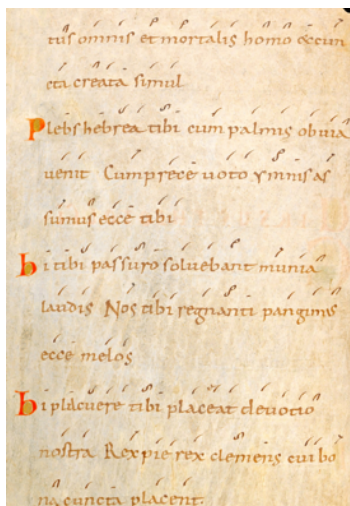 tus omnis et mortalis homo & cun
cta creata simul
Plebs hebrea tibi cum palmis obuia
uenit Cum prece uoto ymnis as
sumus ecce tibi
hi tibi passuro soluebant munia
laudis Nos tibi regnanti pangimus
ecce melos
hi placuere tibi placeat deuotio
nostra Rex pie rex clemens cui bo
na cuncta placent.